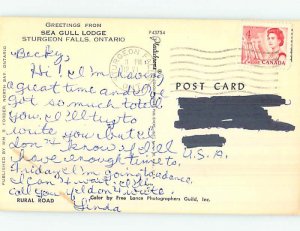 GREETINGS FROM
SEA GULL LODGE
STURGEON FALLS, ONTARIO
Becky,
Hi! I'm having
a great time and I've
got so much to tell
you, I'll try to
write you but I
don't know if I'll
have enough time to.
Friday I'm going to a dance.
I can't wait. I'll
call you if I don't write.
Linda
RURAL ROAD
Color by Free Lance Photographers Guild, Inc.
POST CARD
U.S.A.
4
CANADA
STURGEON F
PM
P43754
PUBLISHED BY WM. NORTH BAY, ONTARIO